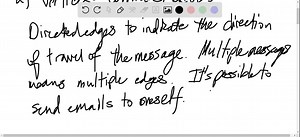 Directed edges to indicate the direction
of travel of the message. Multiple messages
means multiple edges. It's possible to
send emails to oneself.